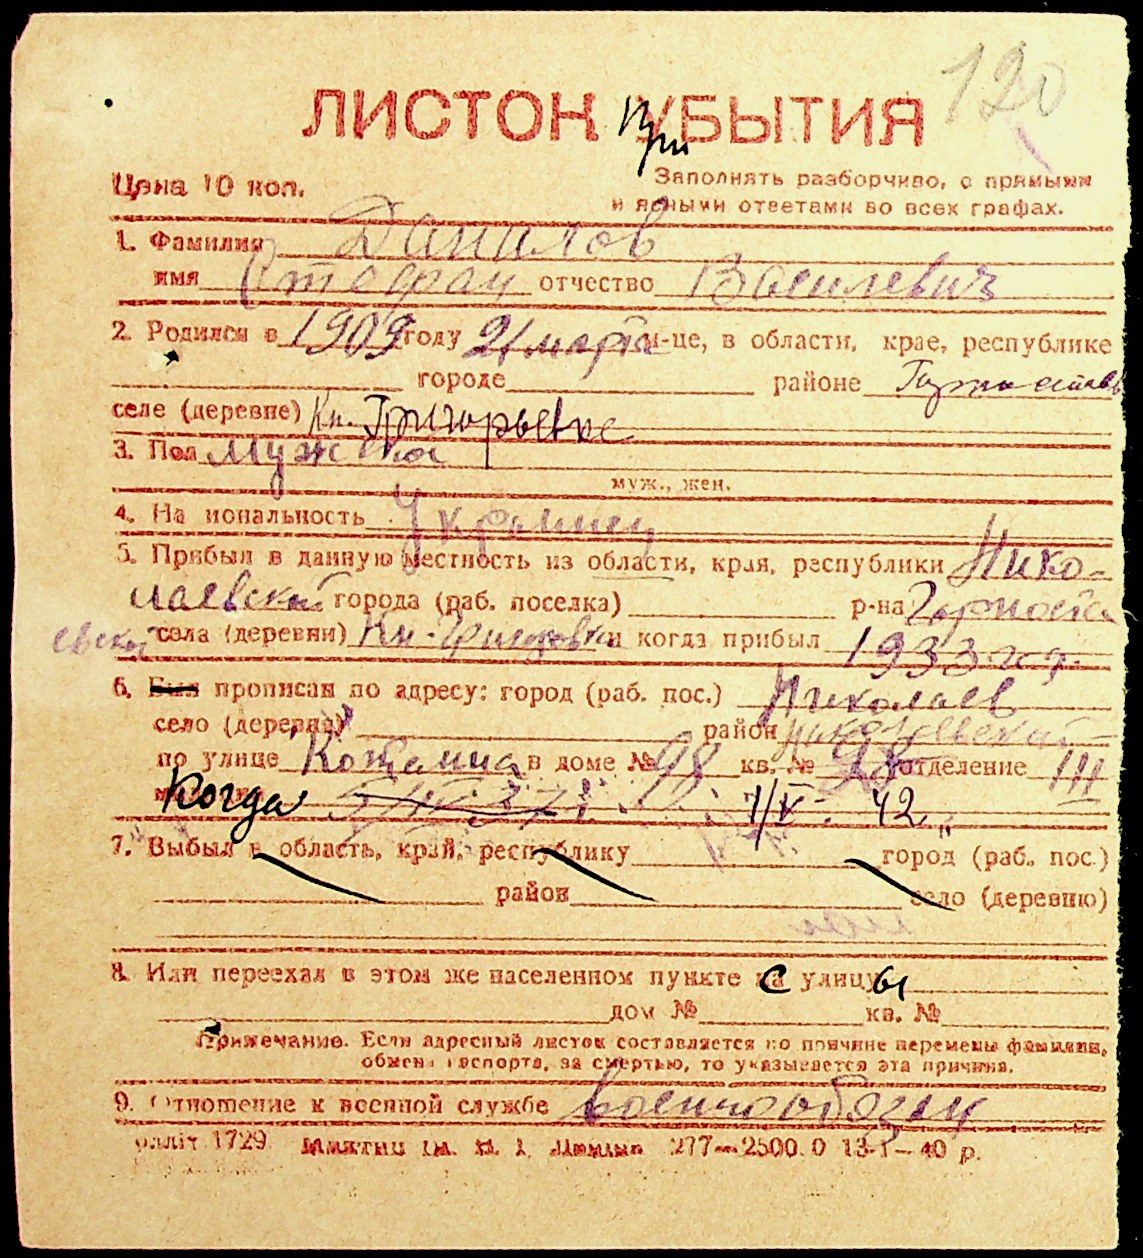 120
ЛИСТОН УБЫТИЯ
При
Цена 10 коп.
Заполнять разборчиво, с прямыми
и ясными ответами во всех графах.
1. Фамилия Данилов
имя Стефан отчество Василевич
2. Родился в 1909 году 21 марта м-це, в области, крае, республике
городе районе
селе (деревне) Кн. Григорьевке
3. Пол мужской
муж., жен.
4. На иональность Украинец
5. Прибыл в данную местность из области, края, республики Нико-
лаевской города (раб. поселка) р-на Горноста
евской села (деревни) Кн-Григоровки и когда прибыл 1933 г.
6. Был прописан по адресу: город (раб. пос.) Николаев
село (деревня) район Николаевский
по улице Котельна в доме № 98 кв. № отделение III
Когда 1/V 42
7. Выбыл в область, край, республику город (раб. пос.)
район село (деревню)
8. Или переехал в этом же населенном пункте с улицы
дом № кв. №
Примечание. Если адресный листок составляется по причине перемены фамилии,
обмена паспорта, за смертью, то указывается эта причина.
9. Отношение к военной службе военнообязан
1729 277—2500.0 13-I—40 р.